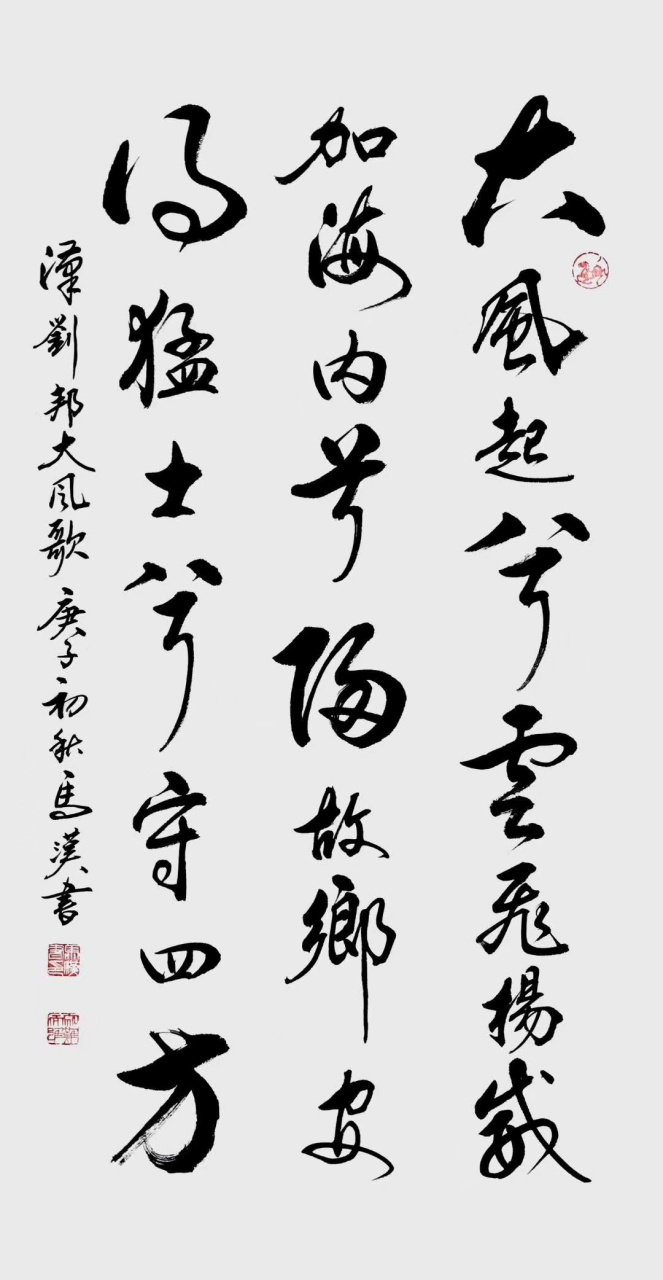 大風起兮雲飛揚威
加海内兮歸故鄉安
得猛士兮守四方
漢劉邦大風歌 庚子初秋馬漢書